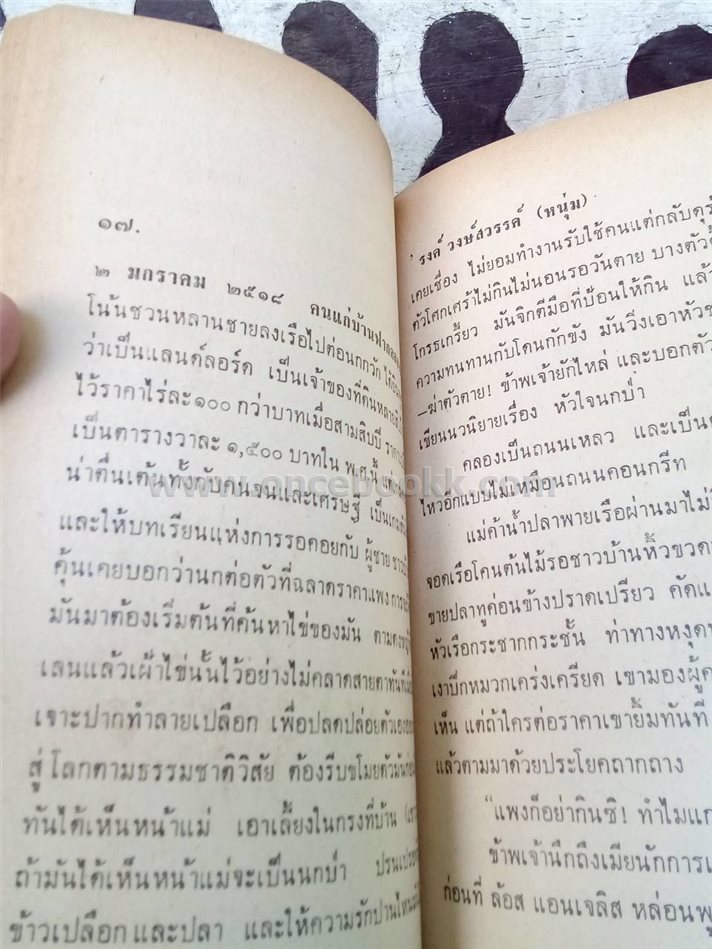 ๑๗.
๒ มกราคม ๒๕๑๘ คนแก่บ้านฟาก
โน้นชวนหลานชายลงเรือไปต่อนกกวัก
ว่าเป็นแลนด์ลอร์ด เป็นเจ้าของที่ดินหลาย
ไว้ราคาไร่ละ ๑๐๐ กว่าบาทเมื่อสามสิบปี
เป็นตารางวาละ ๑,๕๐๐ บาทใน พ.ศ.นี้
น่าตื่นเต้นทั้งกับคนจนและเศรษฐี
และให้บทเรียนแห่งการรอคอยกับ ผู้ชาย
คุ้นเคยบอกว่านกต่อตัวที่ฉลาดราคาแพง
มันมาต้องเริ่มต้นที่ค้นหาไข่ของมัน
เลนแล้วเฝ้าไข่นั้นไว้อย่างไม่คลาดสายตาทันที
เจาะปากทำลายเปลือก เพื่อปลดปล่อยตัวเอง
สู่โลกตามธรรมชาติวิสัย ต้องรีบขโมยตัวมัน
ทันได้เห็นหน้าแม่ เอาเลี้ยงในกรงที่บ้าน
ถ้ามันได้เห็นหน้าแม่จะเป็นนกป่า
ข้าวเปลือกและปลา และให้ความรักปานไหน
'รงค์ วงษ์สวรรค์ (หนุ่ม)
เคยเชื่อง ไม่ยอมทำงานรับใช้คนแต่กลับดุร้
ตัวโศกเศร้าไม่กินไม่นอนรอวันตาย บางตัว
โกรธเกรี้ยว มันจิกตีมือที่ป้อนให้กิน แล้
ความทนทานกับโดนกักขัง มันวิ่งเอาหัวช
—ฆ่าตัวตาย! ข้าพเจ้ายักไหล่ และบอกตัว
เขียนนวนิยายเรื่อง หัวใจนกป่า
คลองเป็นถนนเหลว และเป็น
ไหวอีกแบบไม่เหมือนถนนคอนกรีท
แม่ค้าน้ำปลาพายเรือผ่านมาไม่
จอดเรือโคนต้นไม้รอชาวบ้านหิ้วขวด
ขายปลาทูค่อนข้างปราดเปรียว คัดแ
หัวเรือกระชากกระชั้น ท่าทางหงุด
เงาปีกหมวกเคร่งเครียด เขามองผู้ค
เห็น แต่ถ้าใครต่อราคาเขายิ้มทันที
แล้วตามมาด้วยประโยคถากถาง
"แพงก็อย่ากินซิ! ทำไมแก
ข้าพเจ้านึกถึงเมียนักการเ
ก่อนที่ ล้อส แอนเจลิส หล่อนพู
www.oncebookk.com